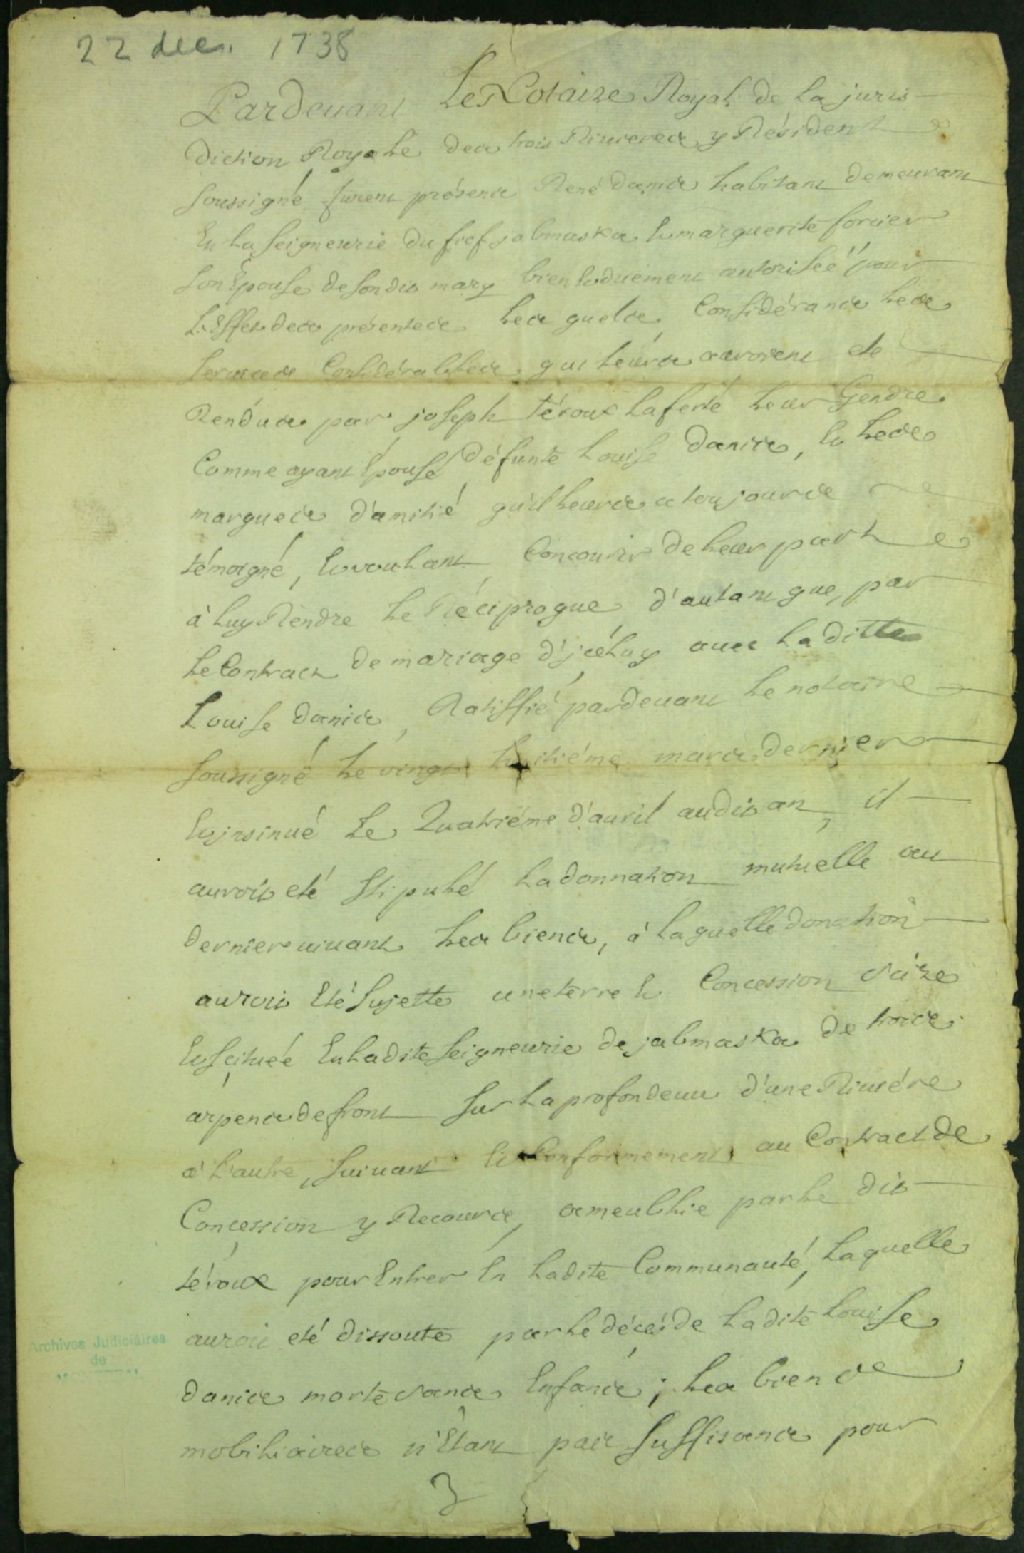 22 dec. 1738
Pardevant Le Notaire Royal de la juris
diction Royale des trois Rivieres y Résident
soussigné furent présens René danis habitant demeurant
En la seigneurie du fief jabmaska Et marguerite forcier
son Epouse de son dit mary bien Et duement autorisée pour
L'Effet des présentes Les quels Considérants Les
services Considérables qui leurs auroient eté
Rendus par joseph téroux Laferté leur Gendre
Comme ayant Epousé défunte Louise danis, Et Les
marques d'amitié qu'il leurs a toujours
témoigné, Et voulant Concourir de leur part
à luy Rendre le Réciproque d'autant que, par
le Contract de mariage d'jceluy avec La ditte
Louise danis, Ratiffié pardevant le notaire
soussigné le vingt huitiéme mars dernier
Et jnsinué Le Quatriéme d'avril audit an, il
auroit eté stipulé La donnation mutuelle au
dernier vivant Les biens, à laquelle donation
auroit Eté sujette une terre Et Concession size
Et scituée En ladite seigneurie de jabmaska de trois
arpens de front sur la profondeur d'une Riviére
à L'autre, suivant Et Conformement au Contract de
Concession y Recours, ameublie par le dit
téroux pour Entrer En ladite Communauté, Laquelle
auroit eté dissoute par le décés de ladite Louise
danis morte sans Enfans; Les biens
mobiliaires n'Etant pas suffisans pour
Archives Judiciaires
de